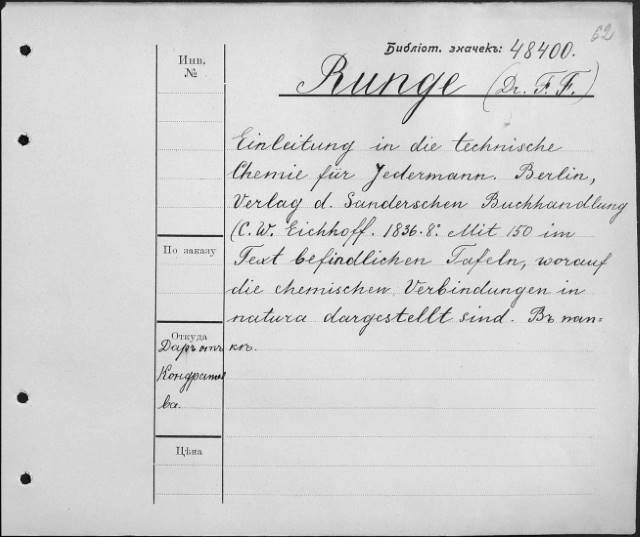 62
Библіот. значекъ: 48400.
Инв.
№
Runge (Dr. F. F.)
Einleitung in die technische
Chemie für Jedermann. Berlin,
Verlag d. Sanderschen Buchhandlung
(C. W. Eichhoff. 1836. 8º. Mit 150 im
По заказу
Text befindlichen Tafeln, worauf
die chemischen Verbindungen in
natura dargestellt sind. Въ пап=
Откуда
Даръ отъ
кѣ.
Кондратье
ва.
Цѣна